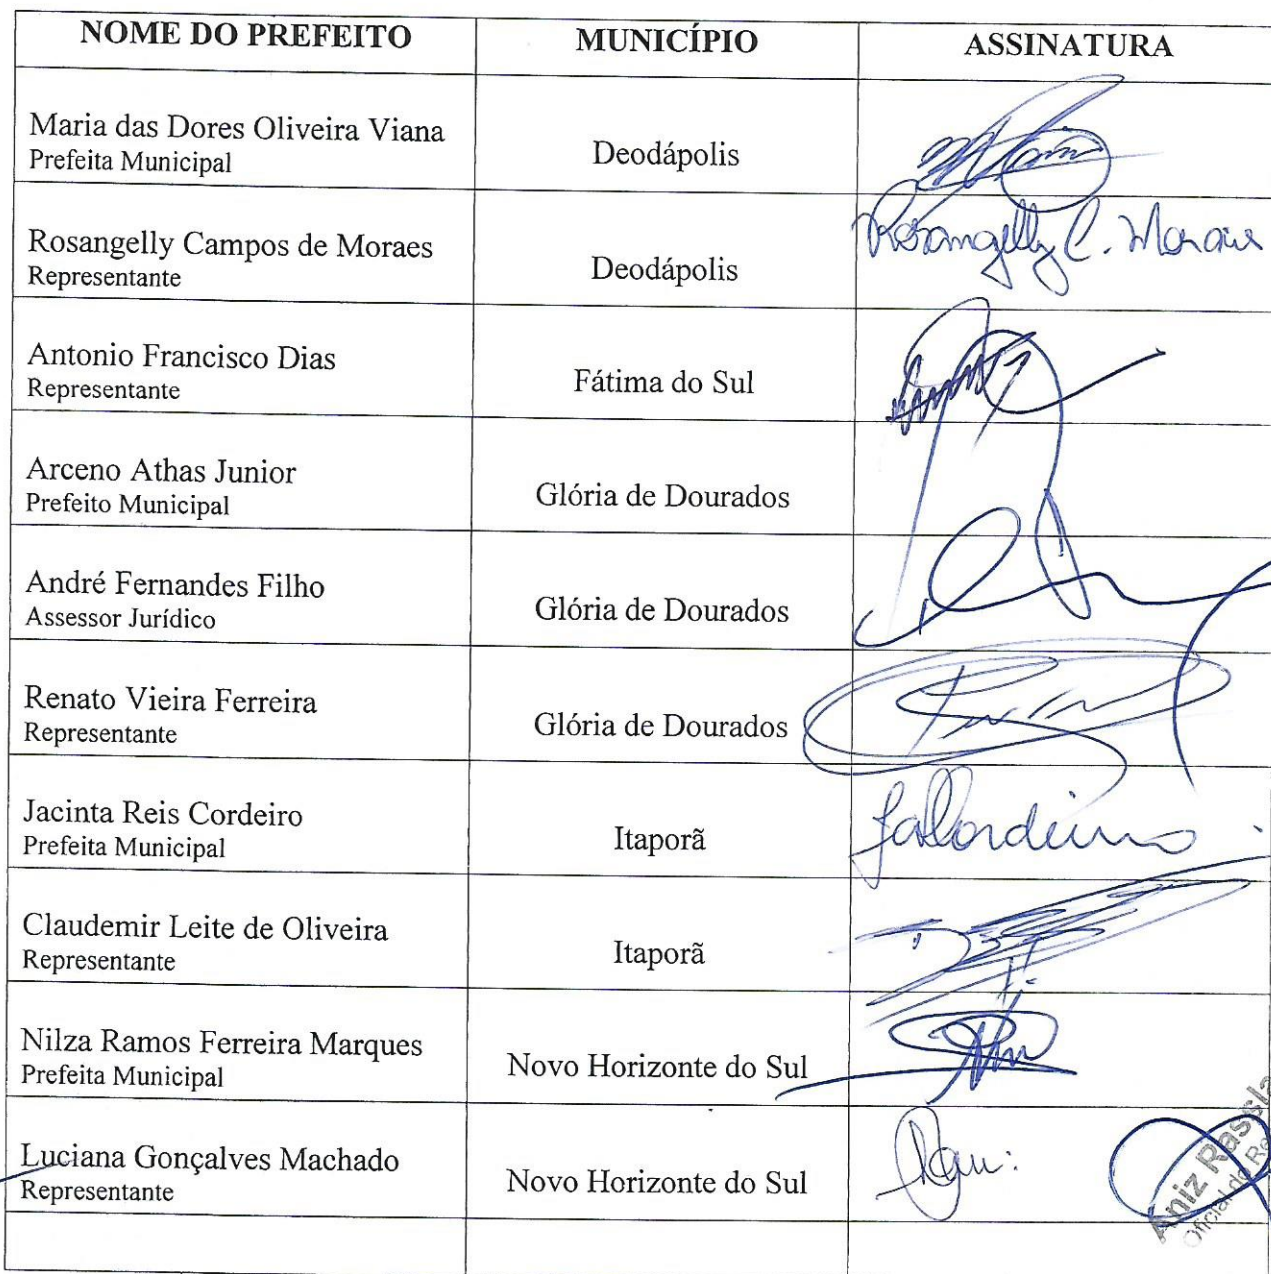 NOME DO PREFEITO MUNICÍPIO ASSINATURA
Maria das Dores Oliveira Viana
Prefeita Municipal
Deodápolis
Rosangelly Campos de Moraes
Representante
Deodápolis
Rosangelly C. Moraes
Antonio Francisco Dias
Representante
Fátima do Sul
Arceno Athas Junior
Prefeito Municipal
Glória de Dourados
André Fernandes Filho
Assessor Jurídico
Glória de Dourados
Renato Vieira Ferreira
Representante
Glória de Dourados
Jacinta Reis Cordeiro
Prefeita Municipal
Itaporã
Claudemir Leite de Oliveira
Representante
Itaporã
Nilza Ramos Ferreira Marques
Prefeita Municipal
Novo Horizonte do Sul
Luciana Gonçalves Machado
Representante
Novo Horizonte do Sul
Aniz Rassla
Oficial do Re